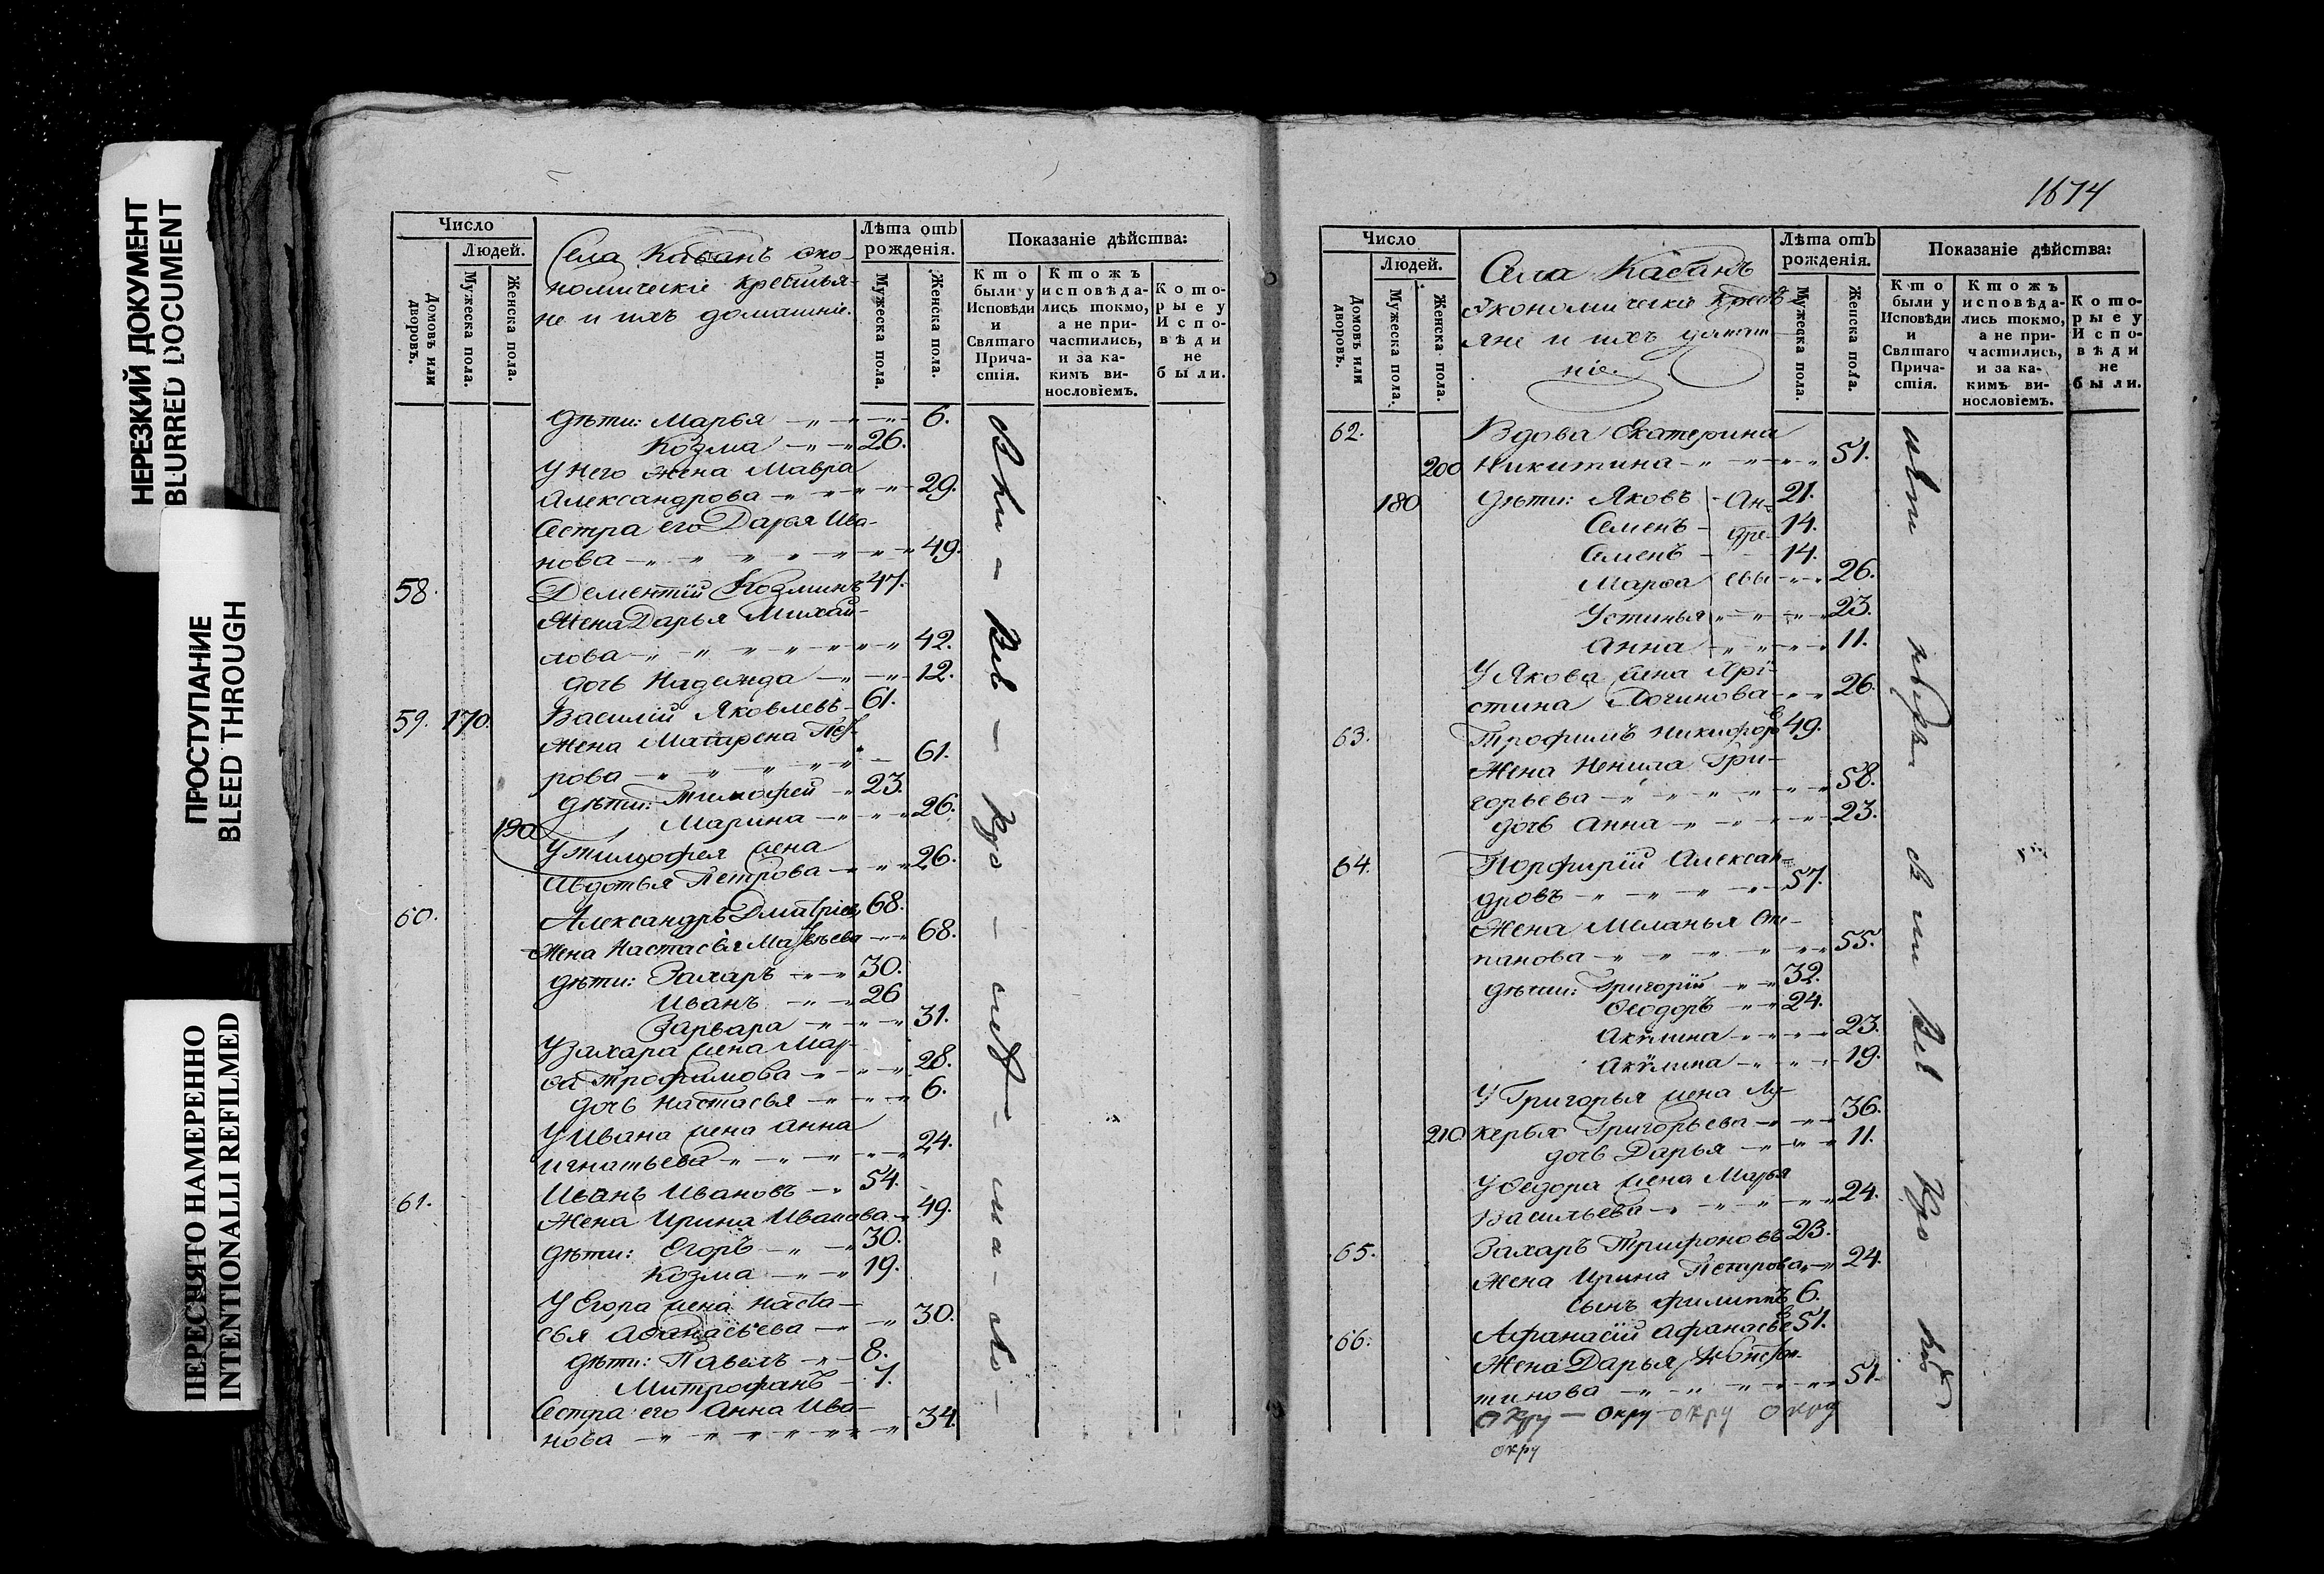 НЕРЕЗКИЙ ДОКУМЕНТ
BLURRED DOCUMENT
ПРОСТУПАНИЕ
BLEED THROUGH
ПЕРЕСНЯТО НАМЕРЕННО
INTENTIONALLI REFILMED
Число
Людей.
Домовъ или дворовъ.
Мужеска пола.
Женска пола.
Села Кабанъ эко-
номическіе крестья-
не и ихъ домашніе.
Лѣта отъ рожденія.
Мужеска пола.
Женска пола.
Показаніе дѣйства:
Кто были у Исповѣди и Святаго Прича-стія.
Ктожъ исповѣда-лись токмо, а не при-частились, и за ка-кимъ ви-нословіемъ.
Кото-рые у Испо-вѣди не были.
дѣти: Марья 6.
Козма 26.
У него жена Мавра
Александрова 29.
Сестра его Дарья Ива-
нова 49.
58. Дементій Козминъ 47.
Жена Дарья Михай-
лова 42.
дочь Надежда 12.
59. 170. Василій Яковлевъ 61.
Жена Матрена Пет-
рова 61.
дѣти: Тимофей 23.
Марина 26.
190 У Тимофея жена
Авдотья Петрова 26.
60. Александръ Дмитріев 68.
Жена Настасья Матвѣева 68.
дѣти: Захаръ 30.
Иванъ 26
Варвара 31.
У Захара жена Мар-
ѳа Трофимова 28.
дочь Настасья 6.
У Ивана жена Анна
Игнатьева 24.
61. Иванъ Ивановъ 54.
Жена Ирина Иванова 49.
дѣти: Егоръ 30.
Козма 19.
У Егора жена Наста-
сья Аѳанасьева 30.
дѣти: Павелъ 8.
Митрофанъ 1.
Сестра его Анна Ива-
нова 34.
1674
Число
Людей.
Домовъ или дворовъ.
Мужеска пола.
Женска пола.
Села Кабанъ
экономическіе кресть
яне и ихъ домаш
ніе.
Лѣта отъ рожденія.
Мужеска пола.
Женска пола.
Показаніе дѣйства:
Кто были у Исповѣди и Святаго Прича-стія.
Ктожъ исповѣда-лись токмо, а не при-частились, и за ка-кимъ ви-нословіемъ.
Кото-рые у Испо-вѣди не были.
62. Вдова Екатерина
200 Никитина 51.
180 дѣти: Яковъ Ан- 21.
Семенъ дре- 14.
Семенъ 14.
Марѳа евы 26.
Устинья 23.
Анна 11.
У Якова жена Хрі-
стина Логинова 26.
63. Трофимъ Никифоров 49.
Жена Ненила Гри-
горьева 58.
дочь Анна 23.
64. Порфирій Алексан-
дровъ 57.
Жена Меланья Сте-
панова 55.
дѣти: Григорій 32.
Ѳеодоръ 24.
Акулина 23.
Акулина 19.
У Григорья жена Лу-
210 керья Григорьева 36.
дочь Дарья 11.
У Ѳедора жена Марья
Васильева 24.
65. Захаръ Трифоновъ 23.
Жена Ирина Петрова 24.
сынъ Филиппъ 6.
66. Афанасій Афанасьев 51.
Жена Дарья Констан-
тинова 51.
окру — окру окру окру
окру